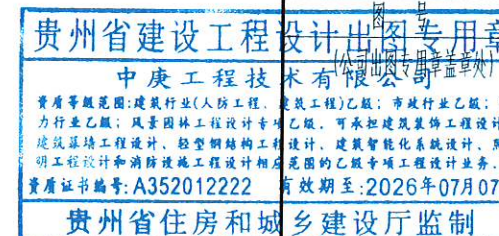 图 号
贵州省建设工程设计出图专用章
(公司出图专用章盖章处)
中庚工程技术有限公司
资质等级范围:建筑行业(人防工程、建筑工程)乙级;市政行业乙级;
力行业乙级;风景园林工程设计专项乙级。可承担建筑装饰工程设计
建筑幕墙工程设计、轻型钢结构工程设计、建筑智能化系统设计、照
明工程设计和消防设施工程设计相应范围的乙级专项工程设计业务。
资质证书编号:A352012222 有效期至:2026年07月07
贵州省住房和城乡建设厅监制